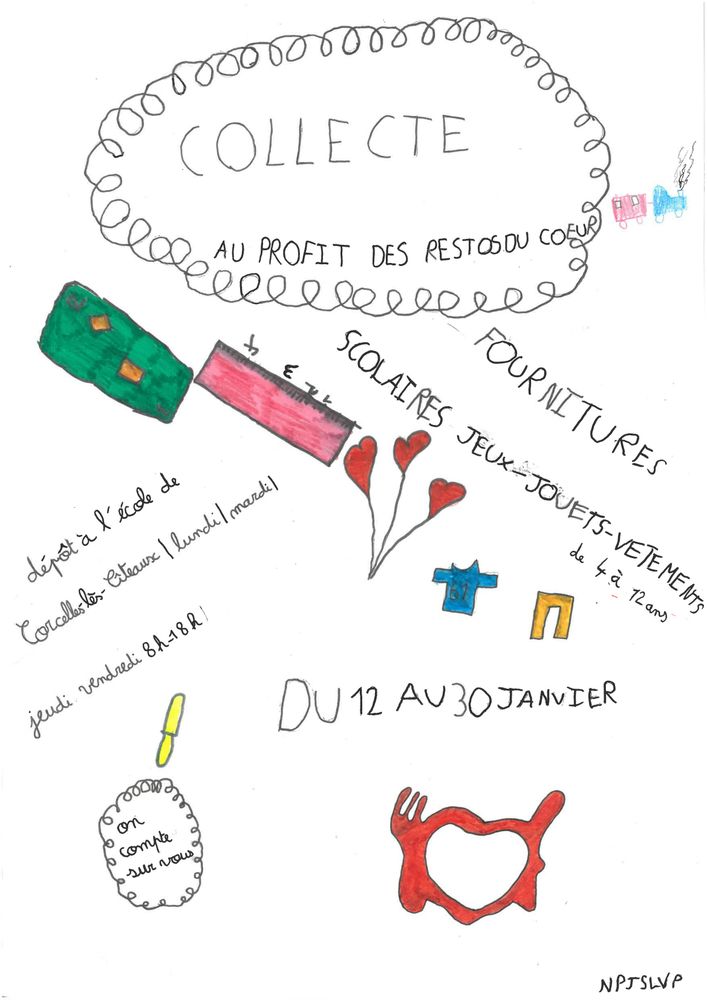 COLLECTE
AU PROFIT DES RESTOS DU COEUR
FOURNITURES
SCOLAIRES JEUX-JOUETS-VETEMENTS
de 4 à 12 ans
4 3 2 1
dépôt à l'école de
Corcelles-lès-Cîteaux / lundi / mardi /
jeudi vendredi 8h-18h /
DU 12 AU 30 JANVIER
on
compte
sur vous
NPJSLVP